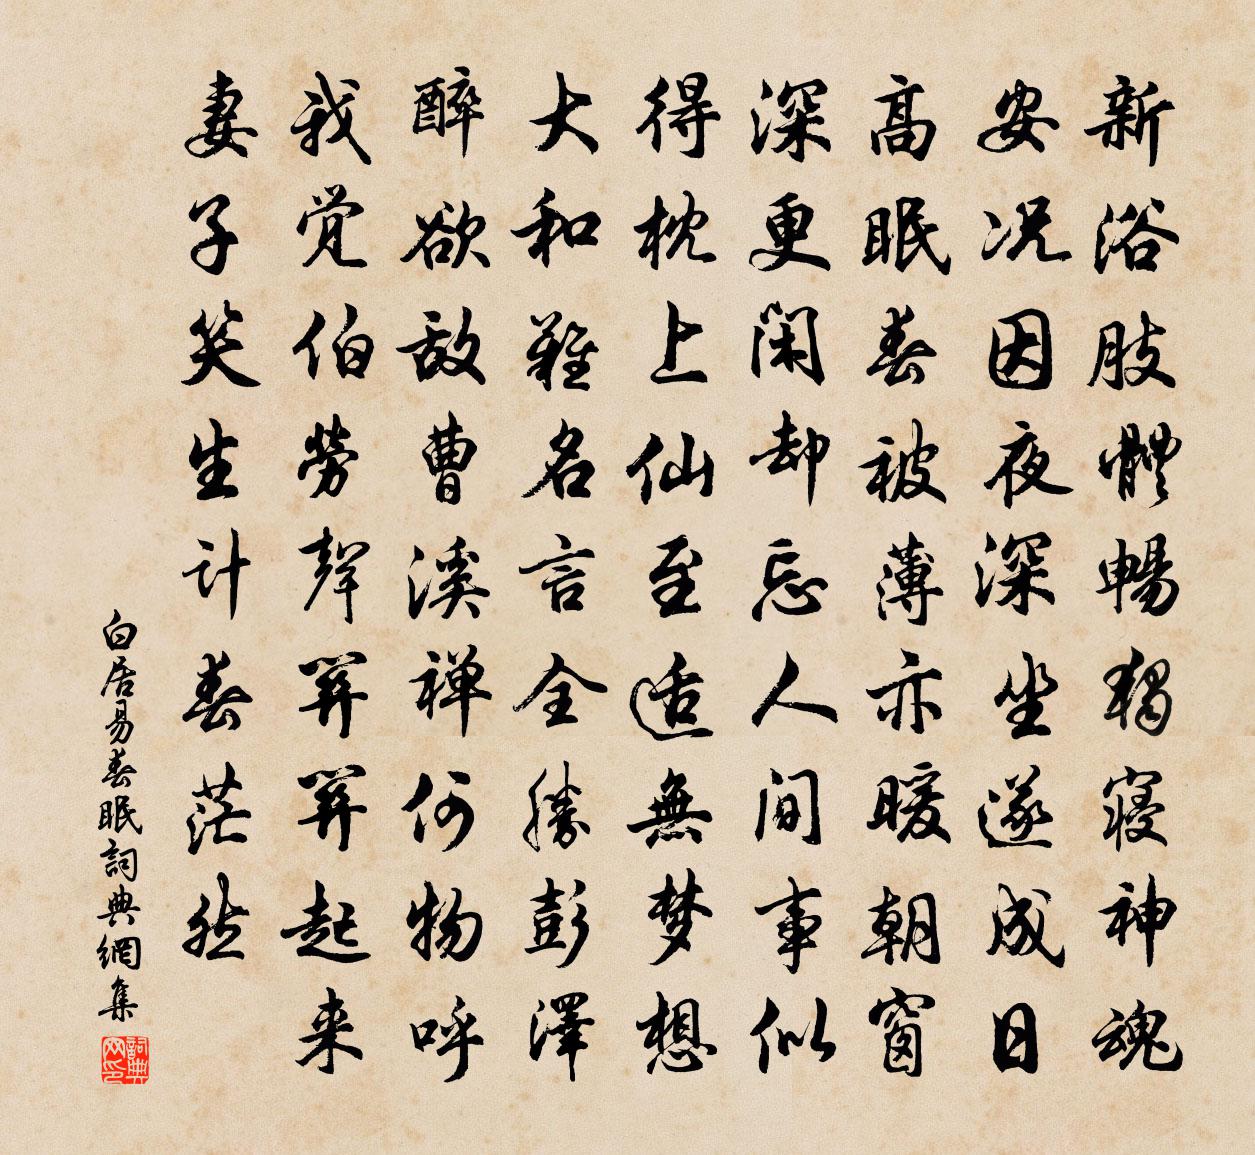 新浴肢體暢獨寢神魂
安况因夜深坐遂成日
高眠春被薄亦暖朝窗
深更閑却忘人間事似
得枕上仙至适無梦想
大和難名言全勝彭澤
醉欲敌曹溪禅何物呼
我觉伯劳聲關關起来
妻子笑生计春茫然
白居易春眠詞典網集
詞典网印